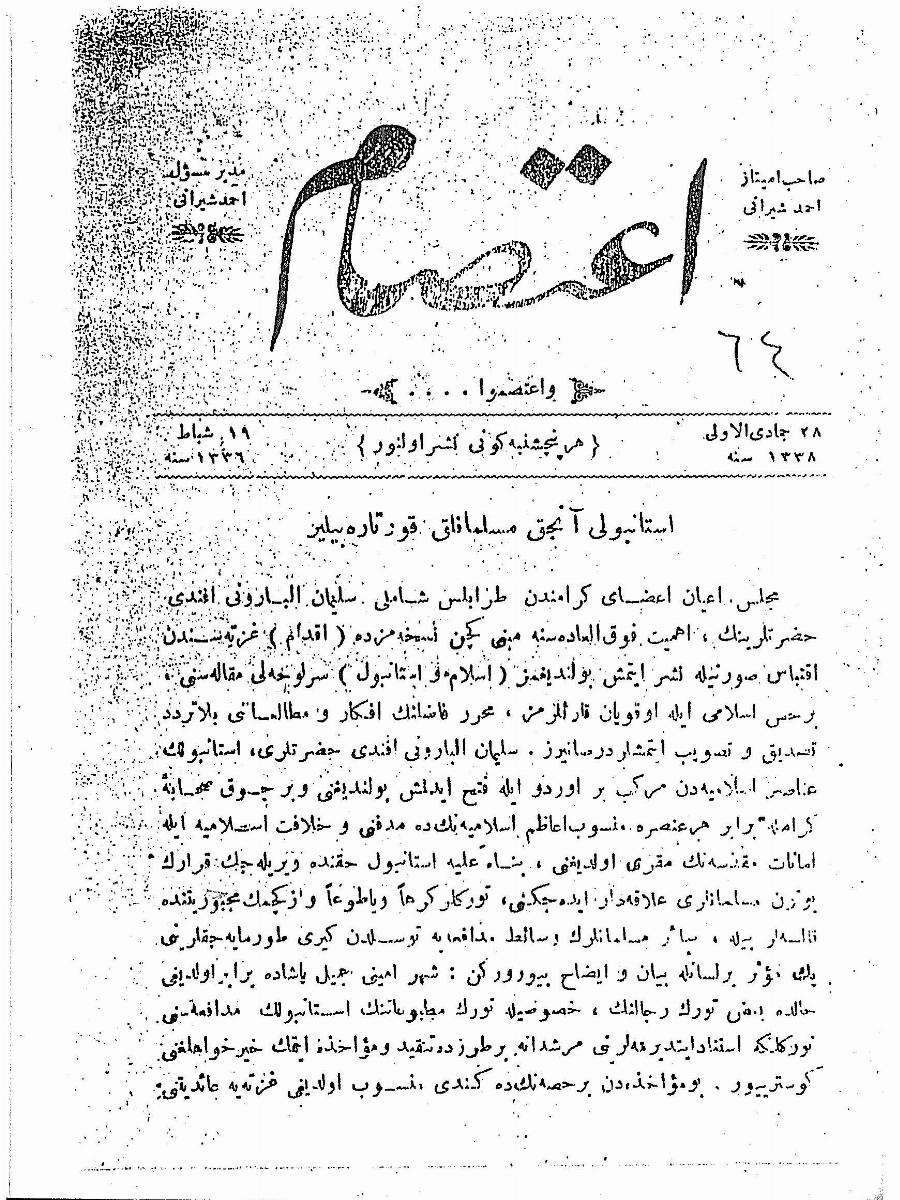 صاحب امیتاز
احمد شیرانی
مدیر مسؤل
احمد شیرانی
اعتصام
٦٤
واعتصموا . . . .
٢٨ جمادی‌الاولی
١٣٣٨ سنه
{ هر پنچشنبه کونی نشر اولنور }
١٩ شباط
١٣٣٦ سنه
استانبولی آنجق مسلمانلق قورتاره‌بیلیر
مجلس اعیان اعضای کرامندن طرابلس شاملی سلیمان البارونی افندی
حضرتلرینك ، اهمیت فوق‌العاده‌سنه مبنی کچن نسخه‌مزده ( اقدام ) غزته‌سندن
اقتباس صورتیله نشر ایتمش بولندیغمز ( اسلام و استانبول ) سرلوحه‌لی مقاله‌سنی ،
برحس اسلامی ایله اوقویان قارئلرمز ، محرر فاضلك افکار و مطالعاتنی بلاتردد
تصدیق و تصویب ایتمشلردر صانیرز . سلیمان البارونی افندی حضرتلری، استانبولك
عناصر اسلامیه‌دن مرکب بر اوردو ایله فتح ایدلمش بولندیغنی و بر چوق صحابهٔ
کرامله برابر هر عنصره منسوب اعاظم اسلامیه‌نك‌ده مدفنی و خلافت اسلامیه ایله
امانات مقدسه‌نك مقری اولدیغنی ، بناءً علیه استانبول حقنده ویریله‌جك قرارك
بوتون مسلمانلری علاقه‌دار ایده‌جکنی، تورکلر کرهاً ویاطوعاً وازکچمك مجبوریتنده
قالسه‌لر بیله ، سائر مسلمانلرك وسائط مدافعه‌یه توسلدن کیری طورمایه‌جقلرینی
پك مؤثر برلسانله بیان و ایضاح بیورورکن : شهر امینی جمیل پاشاده برابر اولدیغی
حالده بعض تورك رجالنك ، خصوصیله تورك مطبوعاتنك استانبولك مدافعه‌سنی
تورکلکه استناد ایتدیرمه‌لرینی مرشدانه برطرزده تنقید ومؤاخذه ایتمك خیرخواهلغنی
کوسترییور . بومؤاخذه‌دن برحصه‌نك‌ده کندی منسوب اولدیغی غزته‌یه عائدیتنی